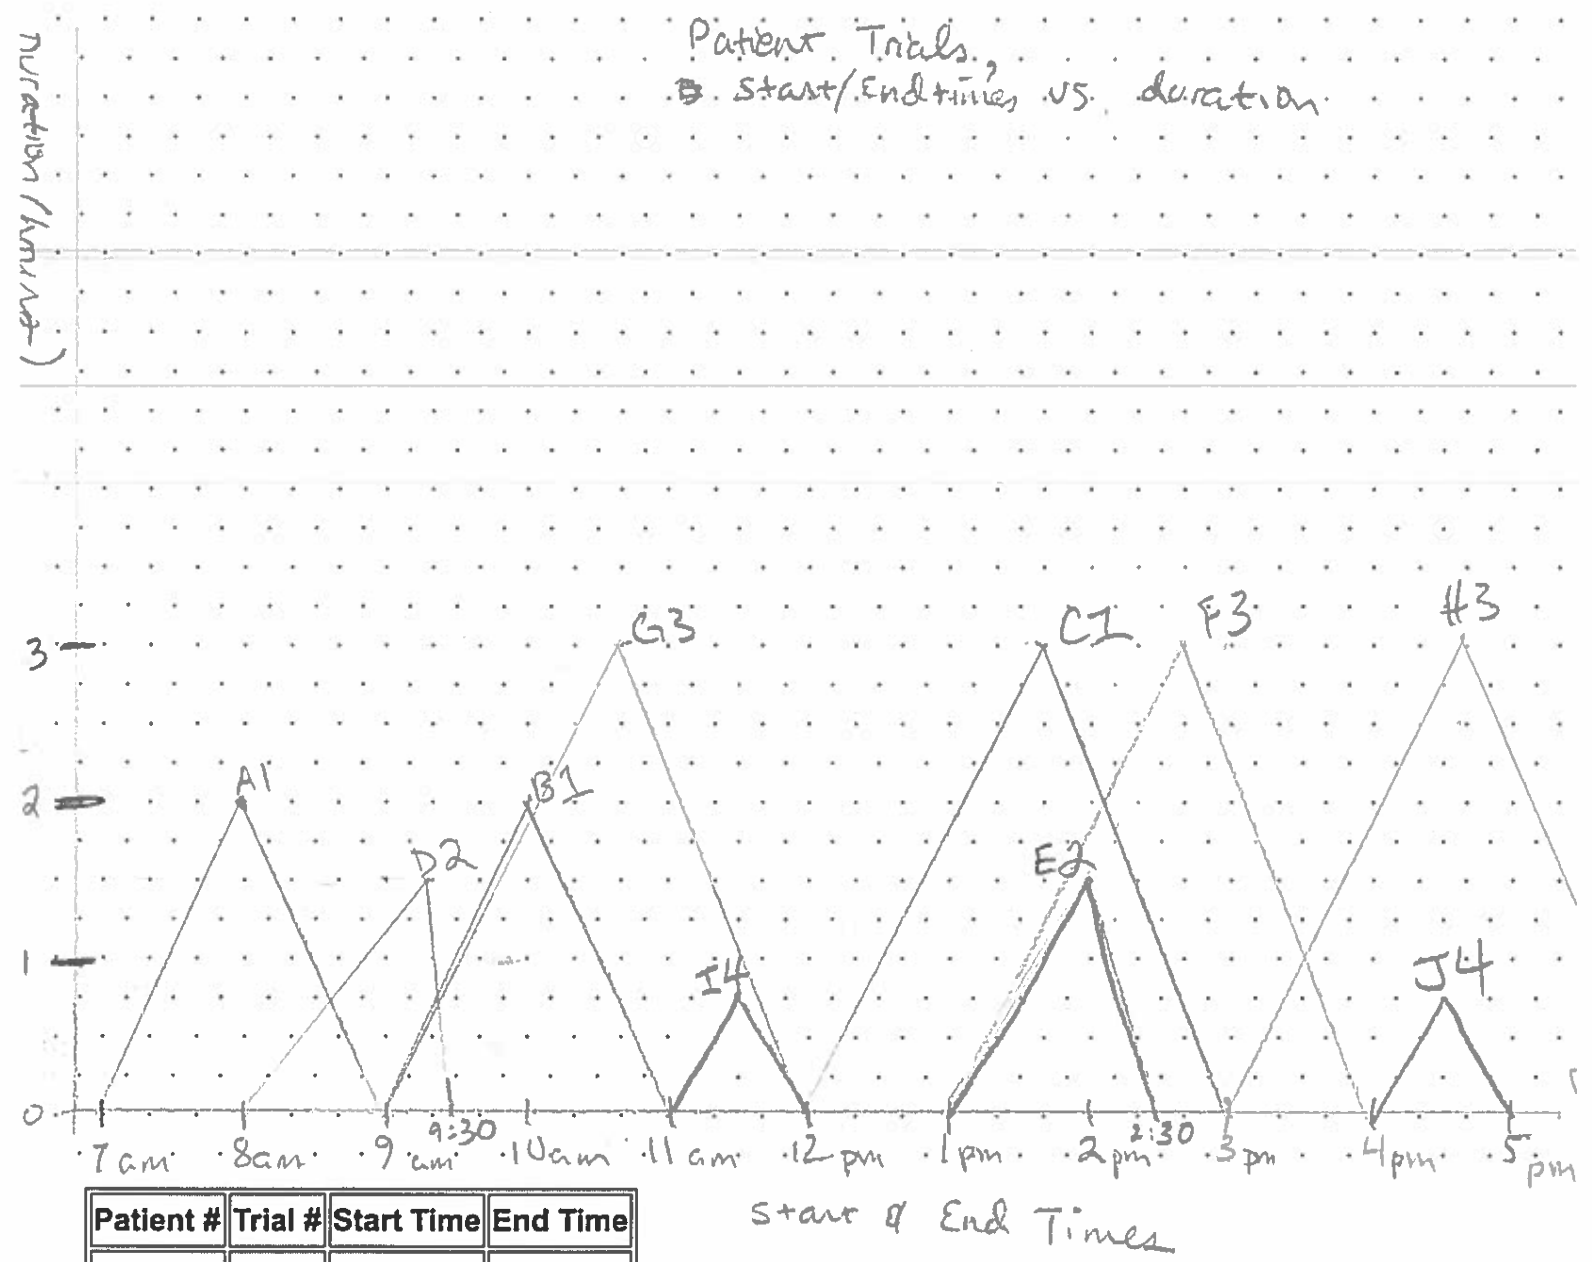 Patient Trials,
Start/End times vs. duration
Duration (hours)
G3
C1
F3
H3
3
A1
B1
2
D2
E2
I4
J4
1
0
9:30
2:30
7am 8am 9am 10am 11am 12pm 1pm 2pm 3pm 4pm 5pm
Start & End Times
Patient # Trial # Start Time End Time